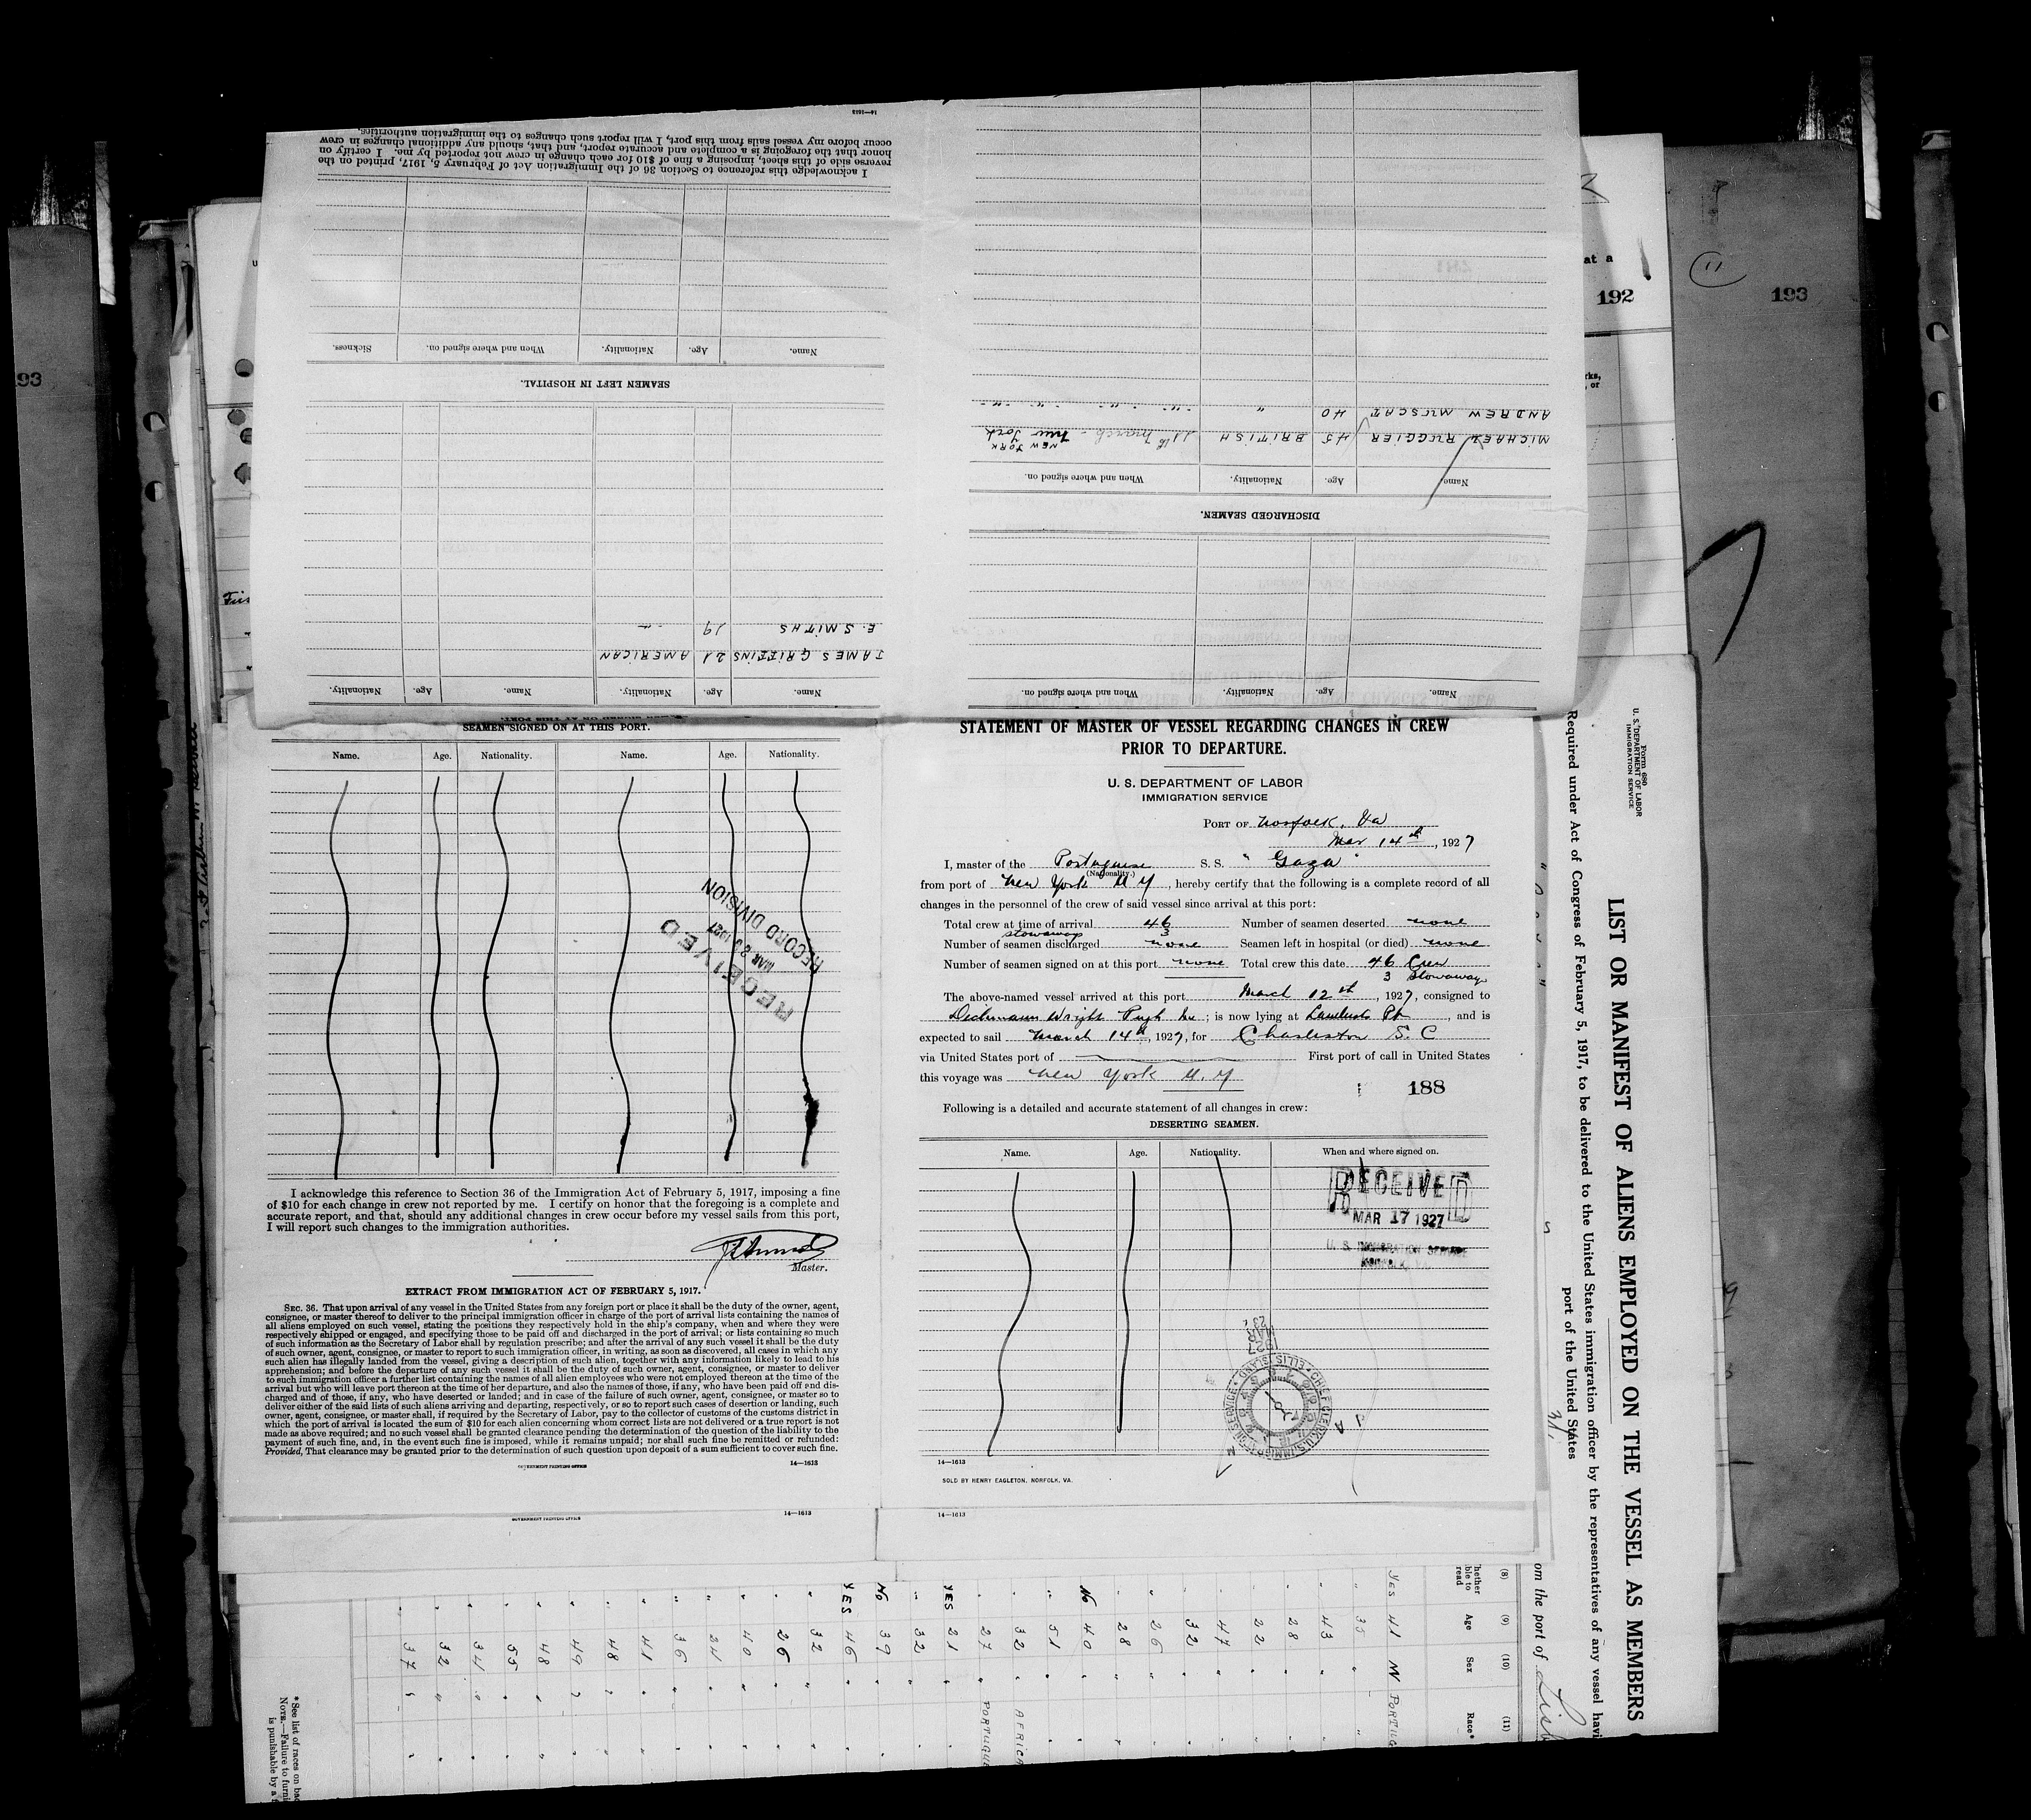 STATEMENT OF MASTER OF VESSEL REGARDING CHANGES IN CREW
PRIOR TO DEPARTURE.
U. S. DEPARTMENT OF LABOR
IMMIGRATION SERVICE
PORT OF Norfolk, Va
Mar 14th, 1927
I, master of the Portuguese S. S. " Gaza "
(Nationality.)
from port of New York N Y, hereby certify that the following is a complete record of all
changes in the personnel of the crew of said vessel since arrival at this port:
Total crew at time of arrival 46 Number of seamen deserted none
stowaways 3
Number of seamen discharged none Seamen left in hospital (or died) none
Number of seamen signed on at this port none Total crew this date 46 Crew
3 Stowaways
The above-named vessel arrived at this port March 12th, 1927, consigned to
Wright Pugh Inc; is now lying at Lamberts Pt, and is
expected to sail March 14th, 1927, for Charleston S. C
via United States port of First port of call in United States
this voyage was New York N. Y
188
Following is a detailed and accurate statement of all changes in crew:
DESERTING SEAMEN.
Name. Age. Nationality. When and where signed on.
RECEIVED
MAR 17 1927
U. S. IMMIGRATION SERVICE
14—1613
SOLD BY HENRY EAGLETON, NORFOLK, VA.
14—1613
SEAMEN SIGNED ON AT THIS PORT.
Name. Age. Nationality. Name. Age. Nationality.
RECEIVED
MAR 23 1927
RECORD DIVISION
I acknowledge this reference to Section 36 of the Immigration Act of February 5, 1917, imposing a fine
of $10 for each change in crew not reported by me. I certify on honor that the foregoing is a complete and
accurate report, and that, should any additional changes in crew occur before my vessel sails from this port,
I will report such changes to the immigration authorities.
Master.
EXTRACT FROM IMMIGRATION ACT OF FEBRUARY 5, 1917.
SEC. 36. That upon arrival of any vessel in the United States from any foreign port or place it shall be the duty of the owner, agent,
consignee, or master thereof to deliver to the principal immigration officer in charge of the port of arrival lists containing the names of
all aliens employed on such vessel, stating the positions they respectively hold in the ship's company, when and where they were
respectively shipped or engaged, and specifying those to be paid off and discharged in the port of arrival; or lists containing so much
of such information as the Secretary of Labor shall by regulation prescribe; and after the arrival of any such vessel it shall be the duty
of such owner, agent, consignee, or master to report to such immigration officer, in writing, as soon as discovered, all cases in which any
such alien has illegally landed from the vessel, giving a description of such alien, together with any information likely to lead to his
apprehension; and before the departure of any such vessel it shall be the duty of such owner, agent, consignee, or master to deliver
to such immigration officer a further list containing the names of all alien employees who were not employed thereon at the time of the
arrival but who will leave port thereon at the time of her departure, and also the names of those, if any, who have been paid off and dis-
charged and of those, if any, who have deserted or landed; and in case of the failure of such owner, agent, consignee, or master so to
deliver either of the said lists of such aliens arriving and departing, respectively, or so to report such cases of desertion or landing, such
owner, agent, consignee, or master shall, if required by the Secretary of Labor, pay to the collector of customs of the customs district in
which the port of arrival is located the sum of $10 for each alien concerning whom correct lists are not delivered or a true report is not
made as above required; and no such vessel shall be granted clearance pending the determination of the question of the liability to the
payment of such fine, and, in the event such fine is imposed, while it remains unpaid; nor shall such fine be remitted or refunded:
Provided, That clearance may be granted prior to the determination of such question upon deposit of a sum sufficient to cover such fine.
GOVERNMENT PRINTING OFFICE 14—1613
GOVERNMENT PRINTING OFFICE 14—1613
Name. Age. Nationality. When and where signed on.
DISCHARGED SEAMEN.
Name. Age. Nationality. When and where signed on.
MICHAEL RUGGIER 45 BRITISH 11th March - New York
NEW YORK
ANDREW MUSCAT 40 "
Name. Age. Nationality. Name. Age. Nationality.
JAMES GRIFFINS 21 AMERICAN
E. SMITHS 19 -"-
SEAMEN LEFT IN HOSPITAL.
Name. Age. Nationality. When and where signed on. Sickness.
I acknowledge this reference to Section 36 of the Immigration Act of February 5, 1917, printed on the
reverse side of this sheet, imposing a fine of $10 for each change in crew not reported by me. I certify on
honor that the foregoing is a complete and accurate report, and that, should any additional changes in crew
occur before my vessel sails from this port, I will report such changes to the immigration authorities.
14—1613
at a
192
11
193
193
Form 680
U. S. DEPARTMENT OF LABOR
IMMIGRATION SERVICE
LIST OR MANIFEST OF ALIENS EMPLOYED ON THE VESSEL AS MEMBERS
Required under Act of Congress of February 5, 1917, to be delivered to the United States immigration officer by the representatives of any vessel havi
port of the United States
om the port of Lisb
(8) (9) (10) (11)
hether
ble to
read
Age Sex Race*
YES 41 M PORTUG
" 35 " "
43
28
22
47
32
26
28
No 40
51
32 AFRICA
27 PORTUGUE
YES 21
32
No 39
YES 46
32
26
40
24
36
41
48
49
48
55
34
32
37
* See list of races on bac
NOTE.—Failure to furni
is punishable by a f